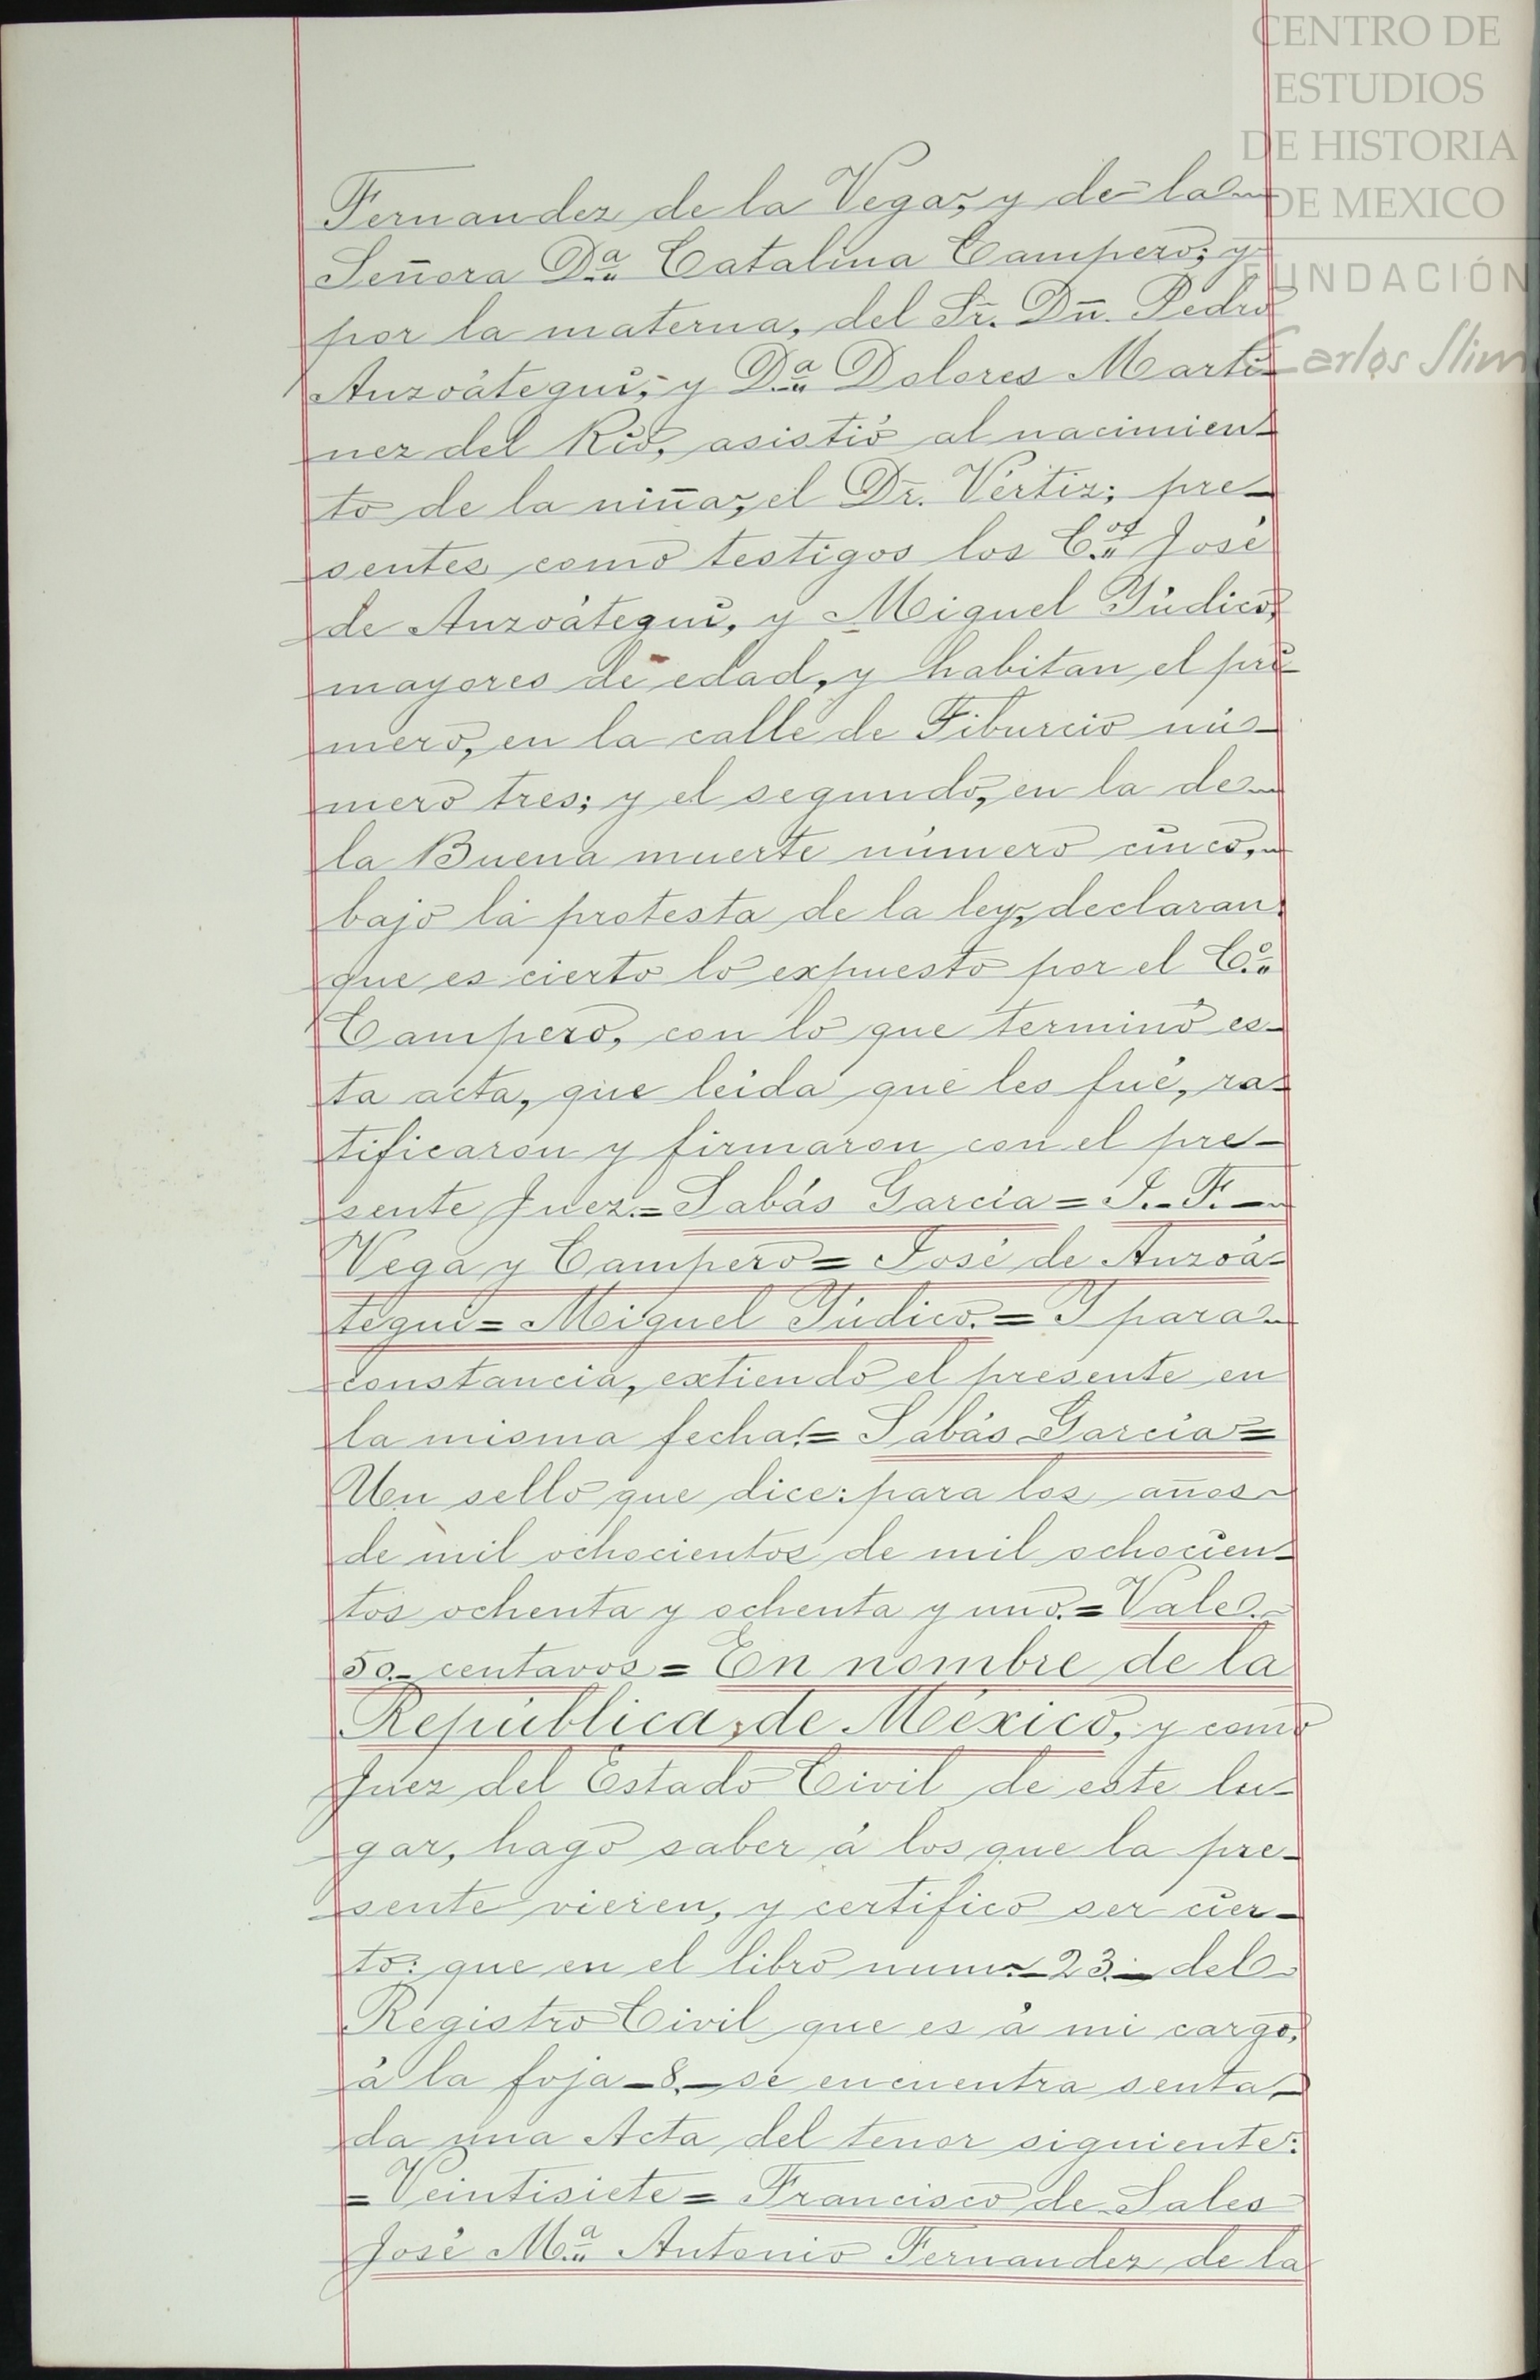 CENTRO DE
ESTUDIOS
DE HISTORIA
DE MEXICO
FUNDACIÓN
Carlos Slim
Fernandez de la Vega, y de la
Señora D.ª Catalina Campero; y
por la materna, del Sr. Dn. Pedro
Anzoátegui, y D.ª Dolores Marti-
nez del Rio, asistió al nacimien-
to de la niña, el Dr. Vértiz; pre-
sentes como testigos los C.os José
de Anzoátegui, y Miguel Yúdico,
mayores de edad, y habitan el pri-
mero, en la calle de Tiburcio nú-
mero tres; y el segundo, en la de
la Buena muerte número cinco,
bajo la protesta de la ley, declaran
que es cierto lo expuesto por el C.º
Campero, con lo que terminó es-
ta acta, que leida que les fué, ra-
tificaron y firmaron con el pre-
sente Juez.= Sabás García = I.- F.-
Vega y Campero = José de Anzoá-
tegui = Miguel Yúdico. = Y para
constancia, extiendo el presente en
la misma fecha.= Sabás García =
Un sello que dice: para los años
de mil ochocientos de mil ochocien-
tos ochenta y ochenta y uno. = Vale
50.- centavos = En nombre de la
República, de México, y como
Juez del Estado Civil de este lu-
gar, hago saber á los que la pre-
sente vieren, y certifico ser cier-
to: que en el libro num.- 23.- del
Registro Civil que es á mi cargo,
á la foja - 8. - se encuentra senta-
da una Acta del tenor siguiente:
= Veintisiete = Francisco de Sales
José M.ª Antonio Fernandez de la